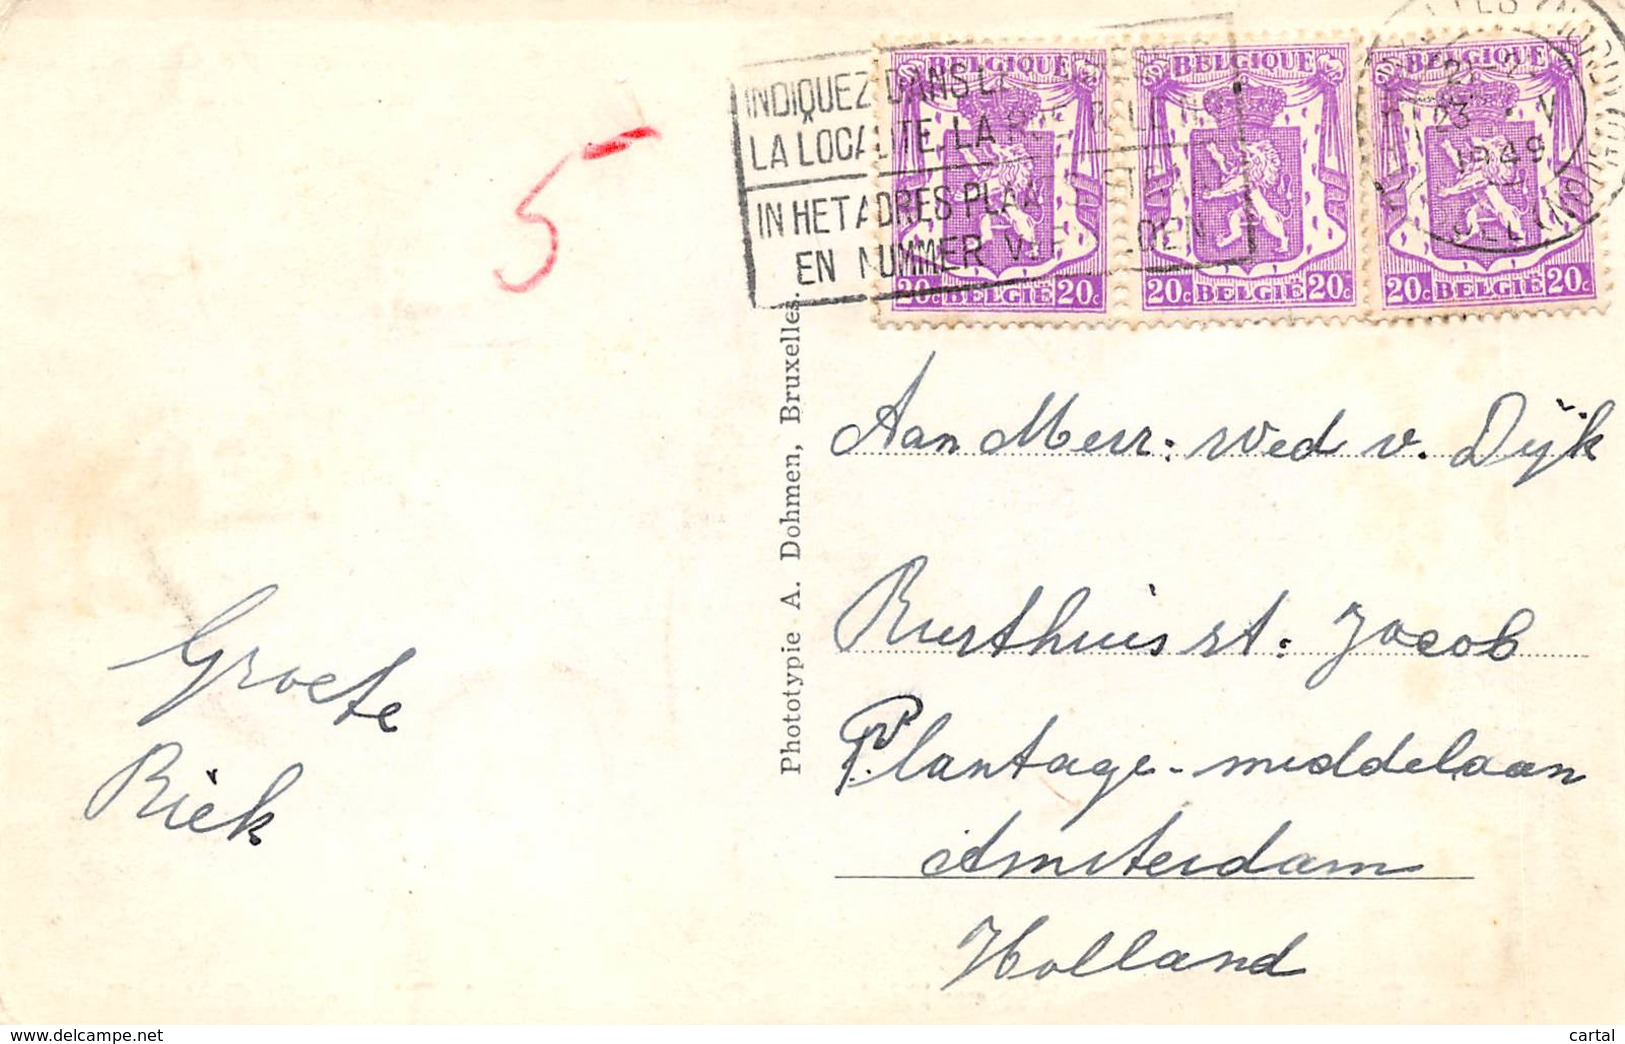 INDIQUEZ DANS L'
LA LOCALITE, LA RUE
IN HET ADRES PLAATS
EN NUMMER
BELGIQUE
20c BELGIË 20c
BELGIQUE
20c BELGIË 20c
BELGIQUE
20c BELGIË 20c
21-2
23 V
1949
5
Phototypie A. Dohmen, Bruxelles.
Aan Mevr: wed v. Dijk
Rusthuis st: Jacob
Plantage-middelaan
Amsterdam
Holland
Groete
Riek
https://www.delcampe.net
cartal